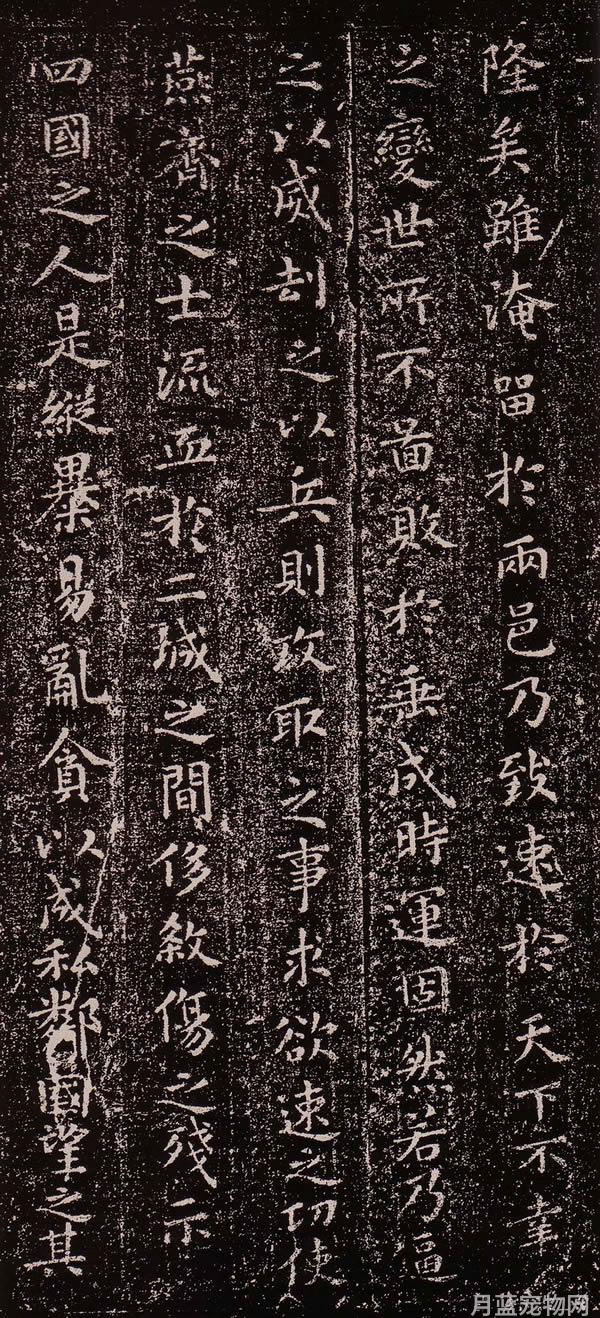 隆矣雖淹留於兩邑乃致速於天下不幸
之變世所不啚敗於垂成時運固然若乃逼
之以威刦之以兵則攻取之事求欲速之功使
燕齊之士流血於二城之間侈敘傷之残示
四國之人是縱暴易亂貪以成私鄰國望之其
月蓝宠物网